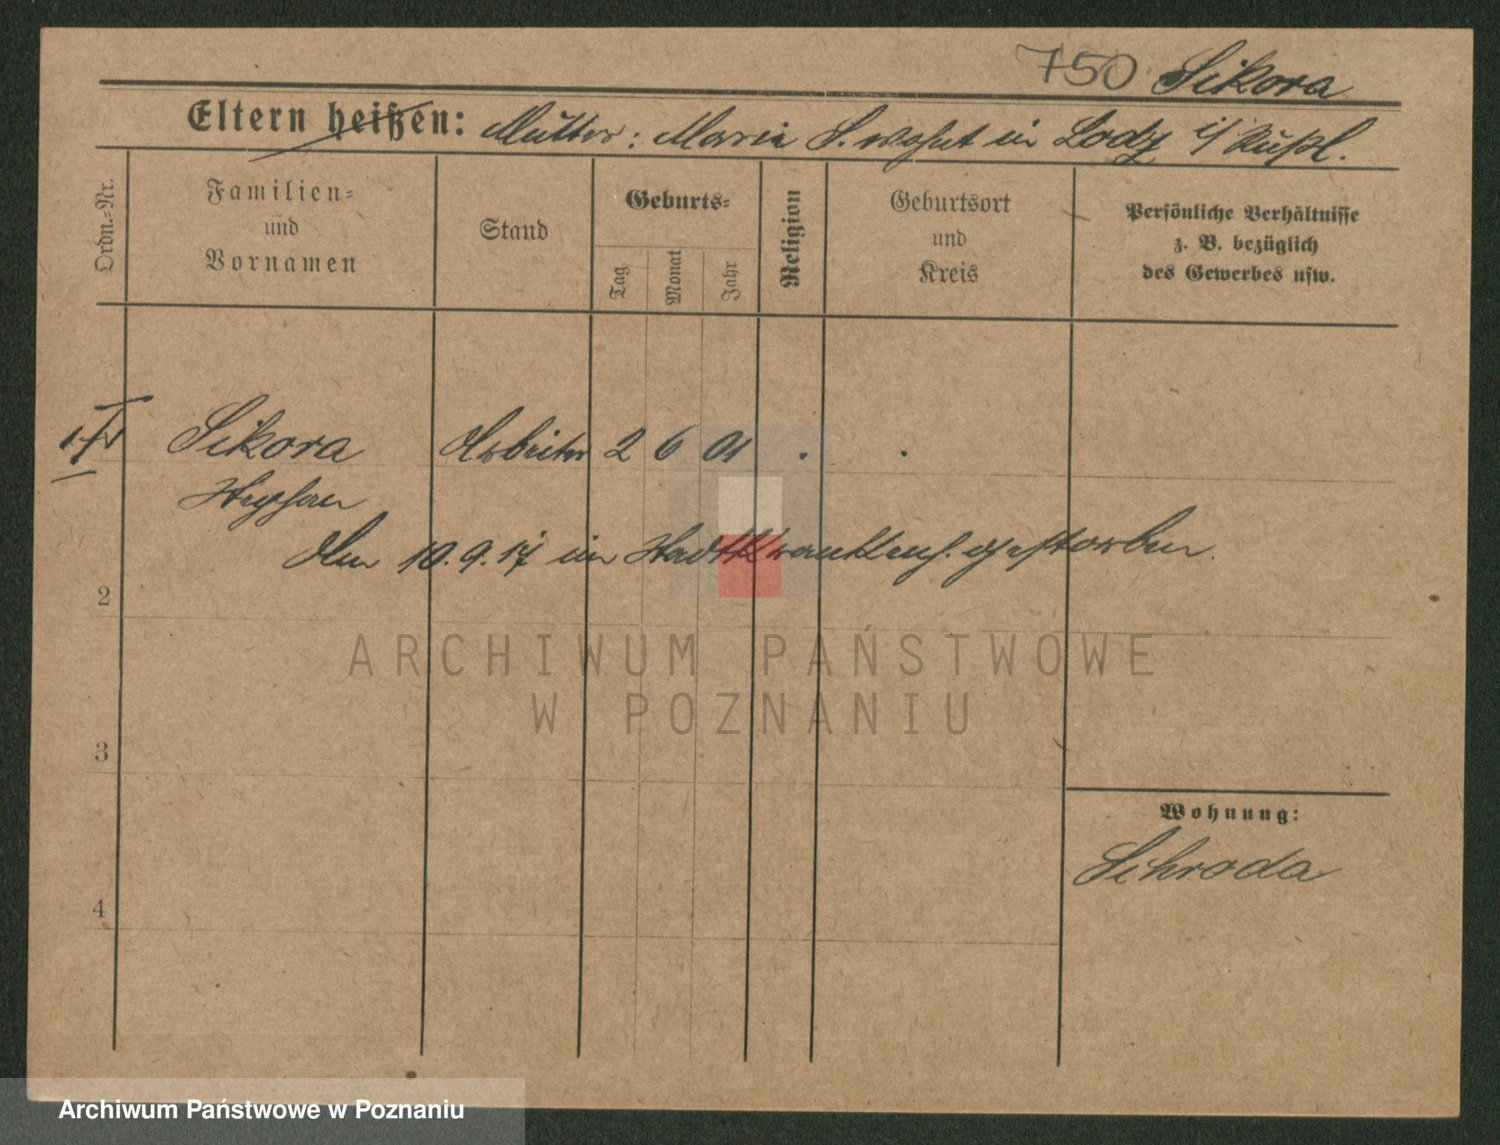 750 Sikora
Eltern heißen: Mutter: Marie S. wohnt in Lodz i/ Rußl.
Ordn.-Nr.
Familien-
und
Vornamen
Stand
Geburts-
Tag
Monat
Jahr
Religion
Geburtsort
und
Kreis
Persönliche Verhältnisse
z. B. bezüglich
des Gewerbes usw.
Sikora Arbeiter 2 6 01 . .
Stephan
Am 10.9.17 im Stadtkrankenh. gestorben.
2
ARCHIWUM PAŃSTWOWE
W POZNANIU
3
Wohnung:
Schroda
4
Archiwum Państwowe w Poznaniu